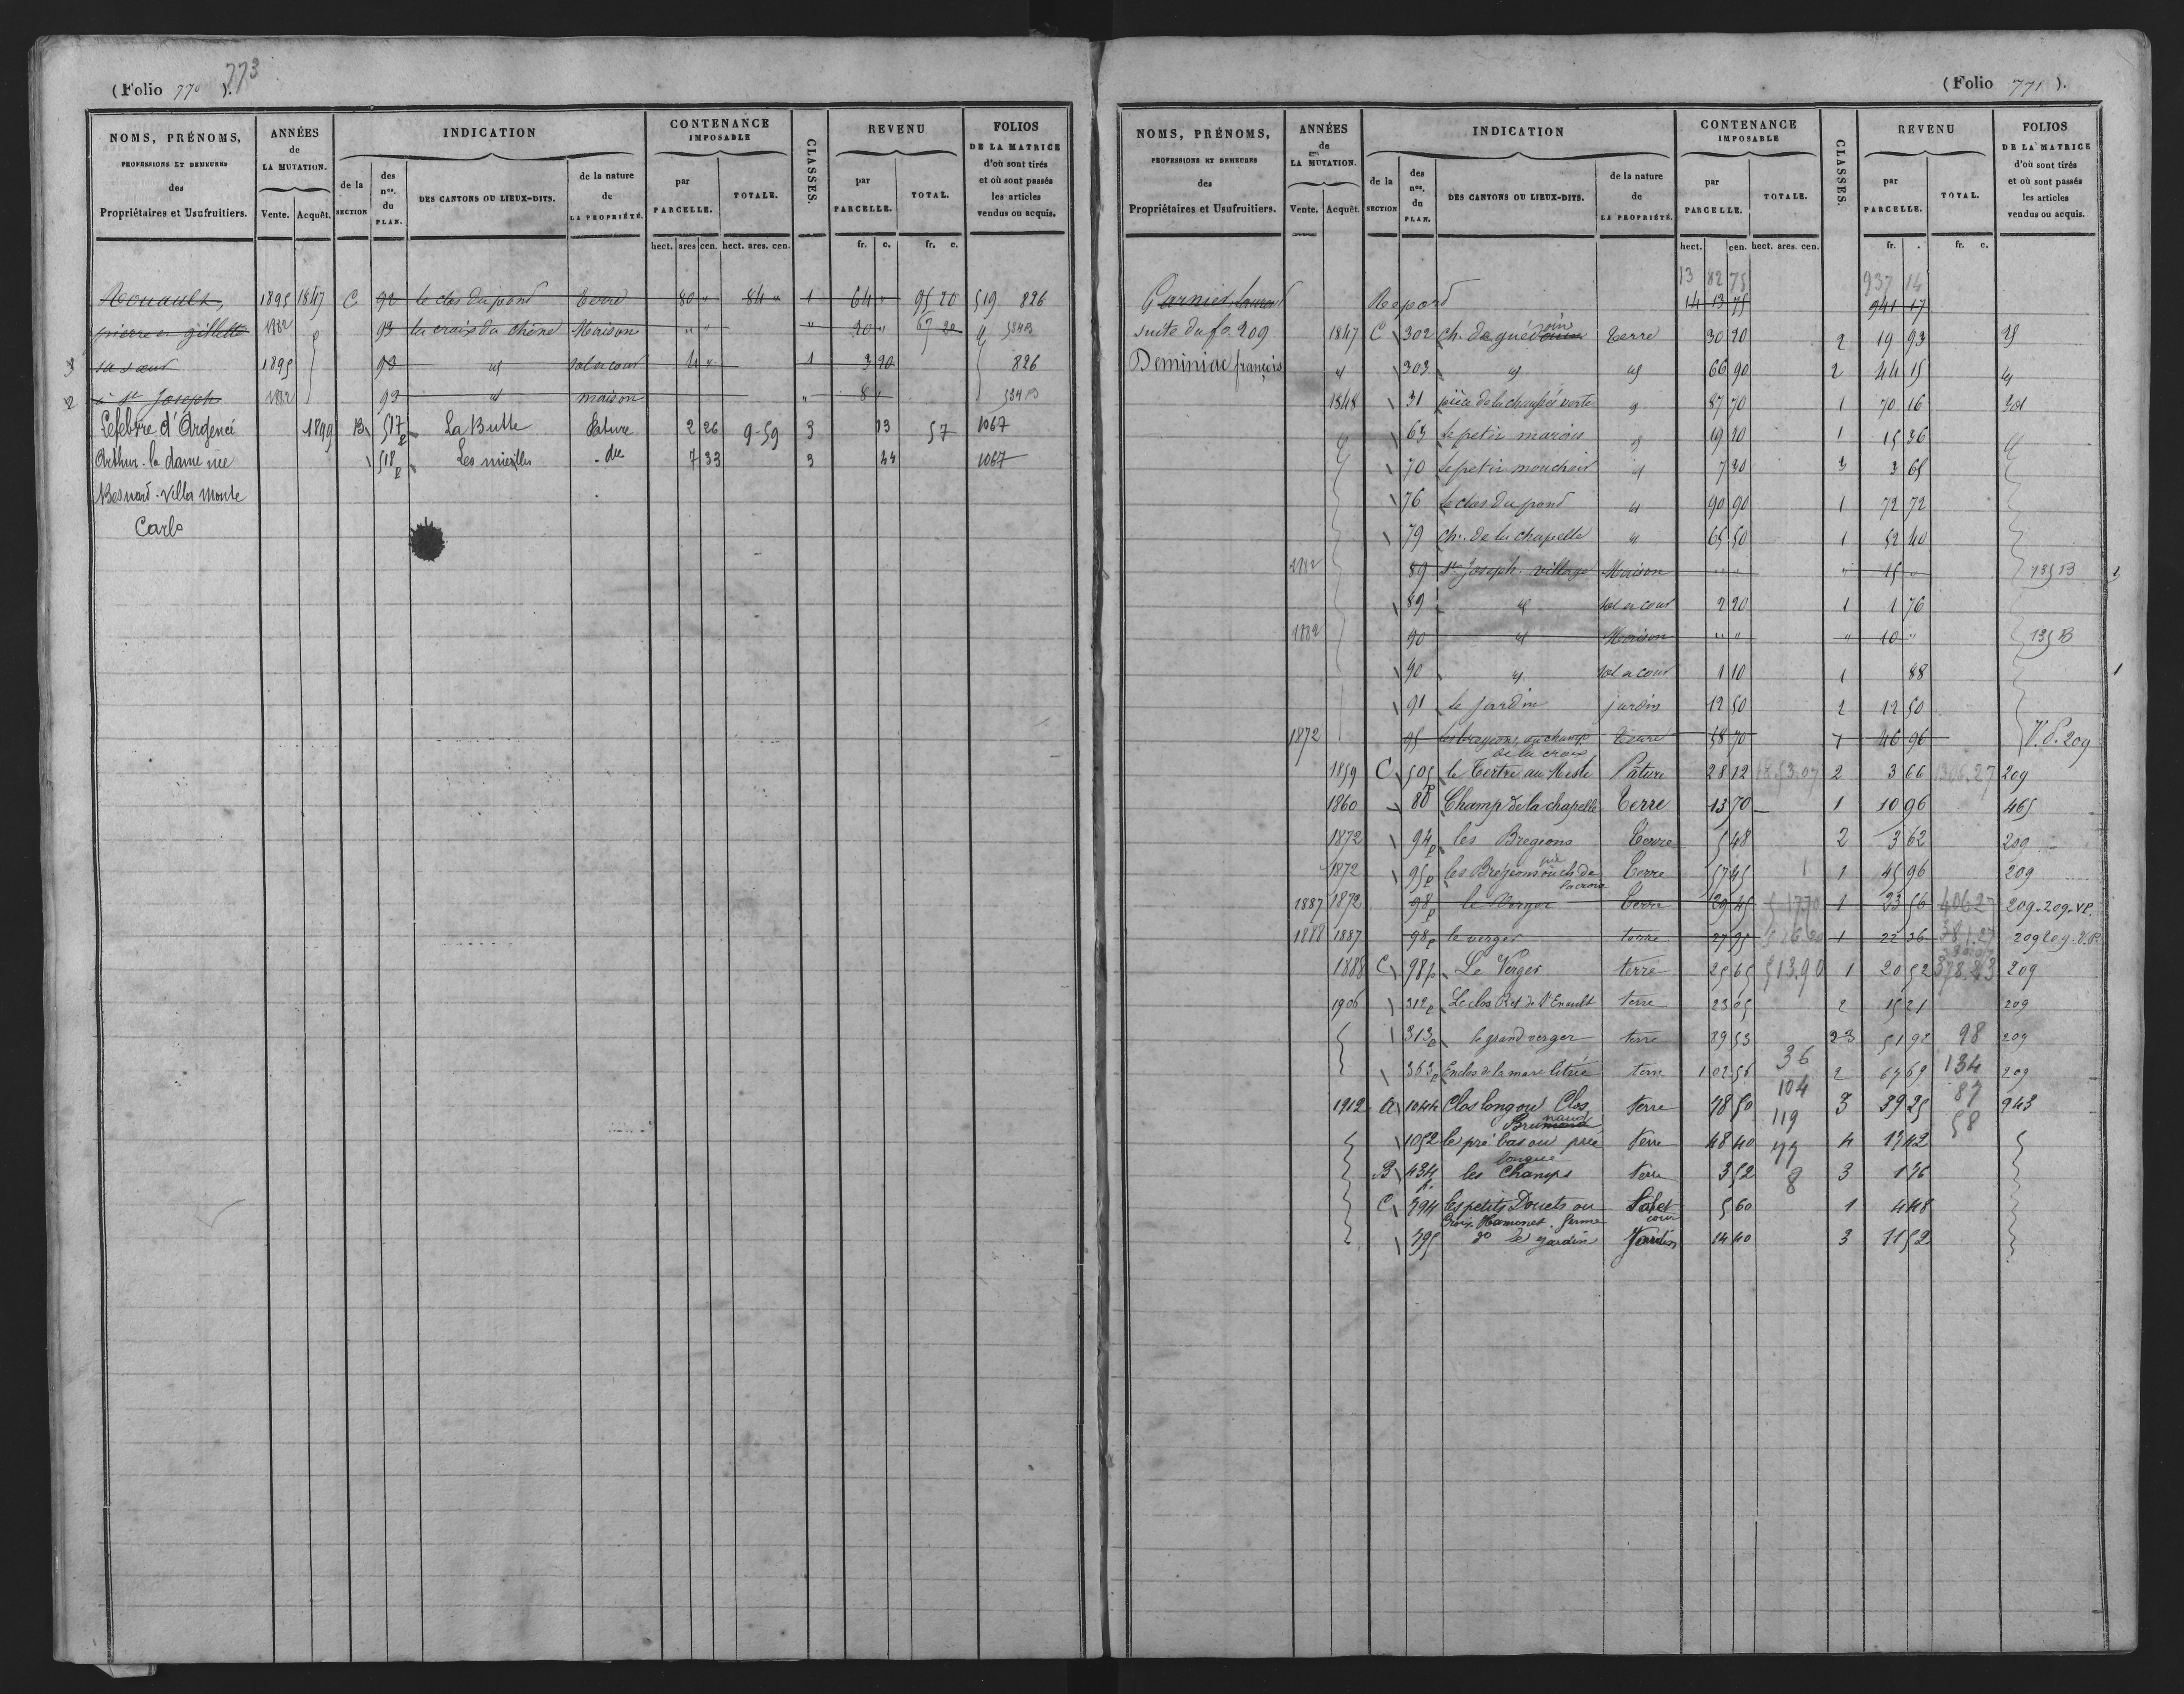 (Folio 770 ). 773
NOMS, PRÉNOMS, PROFESSIONS ET DEMEURES des Propriétaires et Usufruitiers.
ANNÉES de LA MUTATION. Vente. Acquêt.
INDICATION de la SECTION des nos. du PLAN. DES CANTONS OU LIEUX-DITS. de la nature de LA PROPRIÉTÉ.
CONTENANCE IMPOSABLE par PARCELLE. TOTALE. hect. ares cen. hect. ares. cen.
CLASSES.
REVENU par PARCELLE. TOTAL. fr. c. fr. c.
FOLIOS DE LA MATRICE d'où sont tirés et où sont passés les articles vendus ou acquis.
Rouault, 1895 1847 C 92 le clos du pond terre 80 " 84 " 1 64 " 95 20 519 826
pierre en gillette 1882 93 la croix du chêne Maison " " " 20 " 67 20 534 B
3 sa sœur 1895 93 id sol et cour 4 " 1 3 20 826
2 à St Joseph 1882 93 id maison " 8 " 534 B
Lefebvre d'Argencé 1899 B 517 p La Butte Pature 2 26 9-59 3 13 57 1067
Arthur. la dame née 518 p Les mielles do 7 33 3 44 1067
Besnard. villa Monte
Carlo
(Folio 771 ).
NOMS, PRÉNOMS, PROFESSIONS ET DEMEURES des Propriétaires et Usufruitiers.
ANNÉES de LA MUTATION. Vente. Acquêt.
INDICATION de la SECTION des nos. du PLAN. DES CANTONS OU LIEUX-DITS. de la nature de LA PROPRIÉTÉ.
CONTENANCE IMPOSABLE par PARCELLE. TOTALE. hect. cen. hect. ares. cen.
CLASSES.
REVENU par PARCELLE. TOTAL. fr. . fr. c.
FOLIOS DE LA MATRICE d'où sont tirés et où sont passés les articles vendus ou acquis.
13 82 75 937 14
Garnier, laurent Report 14 13 75 941 17
suite du fo. 209 1847 C 302 ch. de guédouin terre 30 20 2 19 93
Deminiac françois id 303 id id 66 90 2 44 15 id
1848 31 pièce de la chaussée verte id 87 70 1 70 16
63 Le petit marais id 19 20 1 15 36
70 Le petit mouchoir id 7 30 3 3 65
76 Le clos du pond id 90 90 1 72 72
79 Ch. de la chapelle id 65 50 1 52 40
1882 89 St Joseph village Maison " " " 15 " 135 B
89 id sol et cour 2 20 1 1 76
1882 90 id Maison " " " 10 " 135 B
90 id sol et cour 1 10 1 88 1
91 Le jardin jardin 12 50 12 50
1872 95 les bregeons, ou champ de la croix terre 58 70 1 46 96 V. P. 209
1859 C 505 p le Tertre au Mesle Pâture 28 12 18.53.07 2 3 66 1306.27 209
1860 80 Champ de la chapelle terre 13 70 1 10 96 465
1872 94 p les Bregeons terre 5 48 2 3 62 209
1872 95 p les Bregeons ou ch de la croix terre 57 45 1 45 96 209
1887 1872 98 p le Verger terre 29 45 1 23 56 209.209.VP.
1888 1887 98 p le verger terre 27 95 1 22 36 209 209.V.P.
1888 C 98 p Le Verger terre 25 65 513.90 1 20 52 209
1906 312 p Le clos Bret de St Enault terre 23 05 2 15 21 209
313 p le grand verger terre 89 53 23 51 92 98 209
36 134
363 p Enclos de la mare litrée terre 1 02 56 2 67 69 209
104 87
1912 A 1044 Clos long ou Clos Brumnaud terre 78 50 3 39 25 943
119 58
1052 le pré bas ou pré longue terre 48 40 4 13 42
77
B 434 les Champs terre 3 52 3 1 76
8
C 394 les petits Douets ou Croix Hamonet. ferme Sol et cour 5 60 1 4 48
395 do Le jardin Jardin 14 40 3 11 52